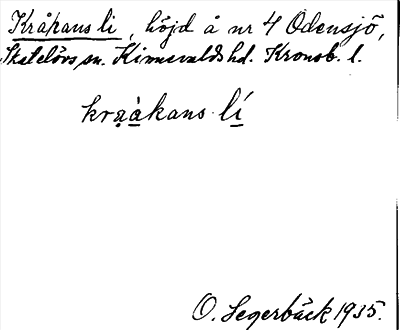 Kråkans li, höjd å nr 4 Odensjö,
Skatelövs sn. Kinnevalds hd. Kronob. l.
krạàkans lí
O. Segerbäck 1935.